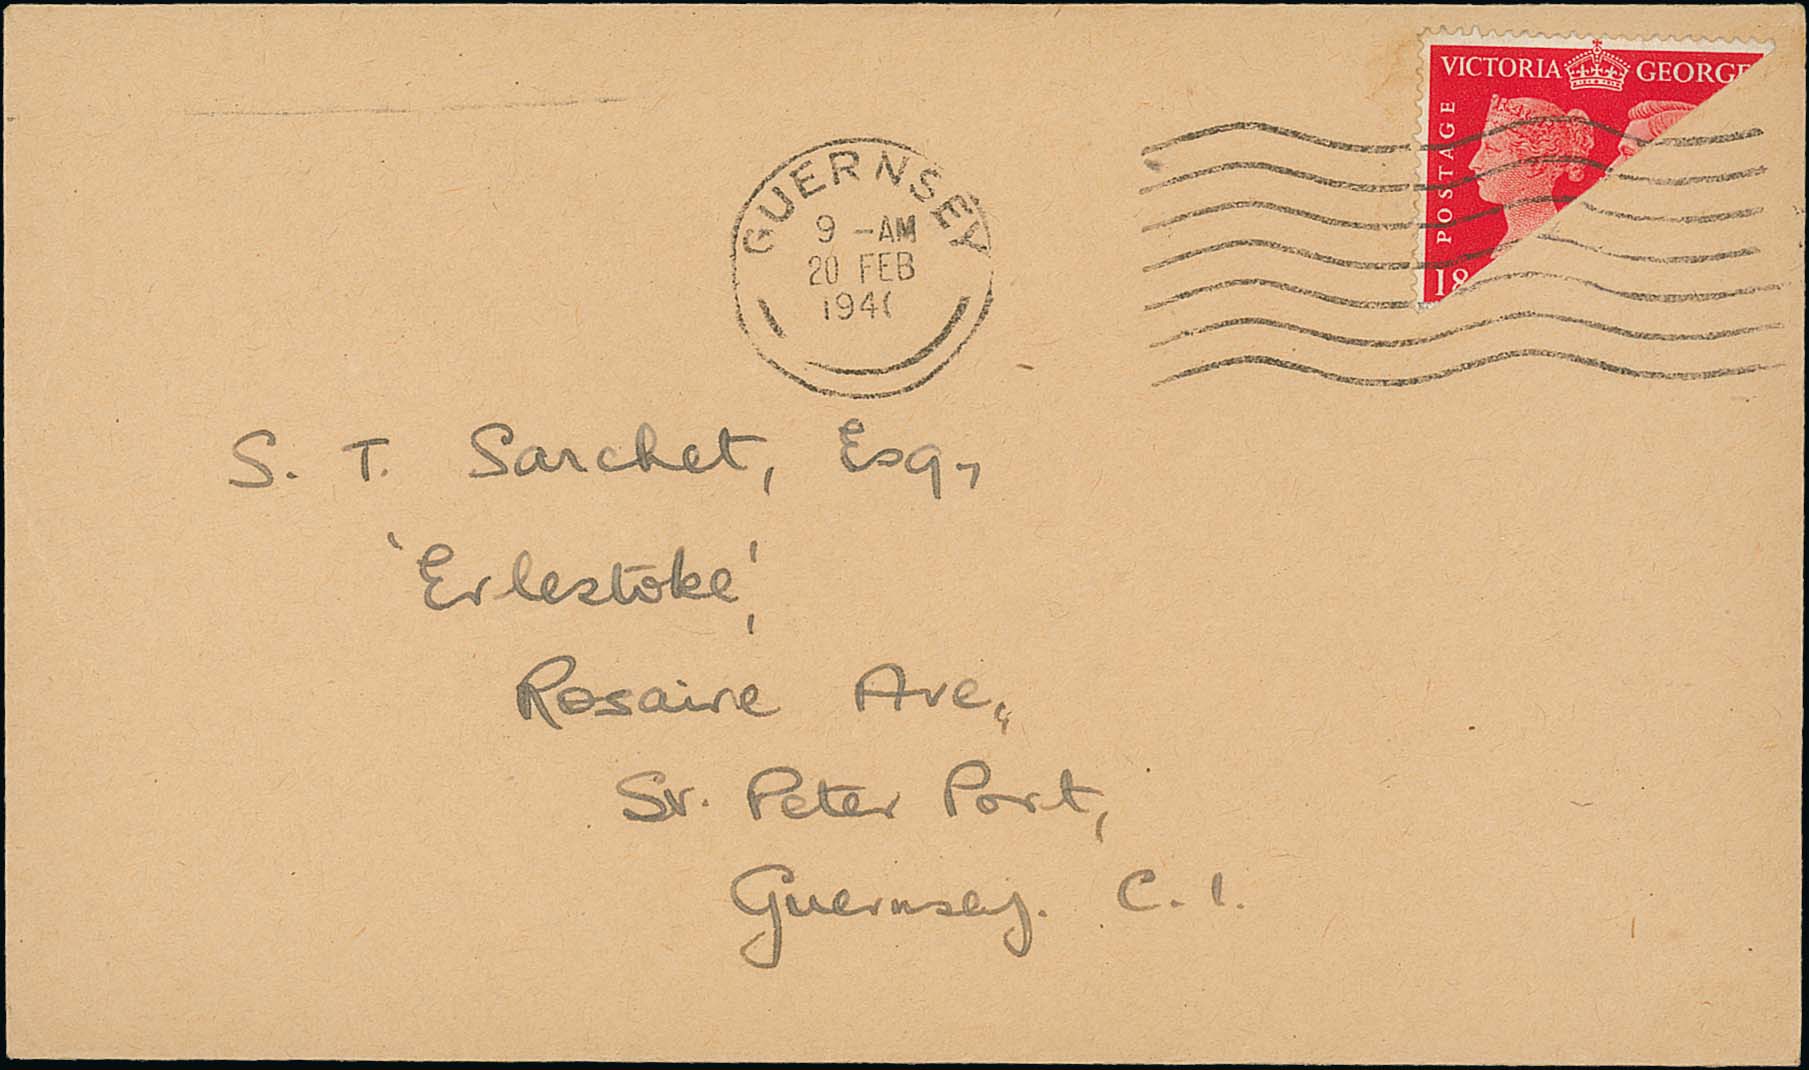 VICTORIA GEORGE
POSTAGE
18
GUERNSEY
9 -AM
20 FEB
194
S. T. Sarchet, Esq,
'Erlestoke',
Rosaire Ave,
St. Peter Port,
Guernsey. C.I.